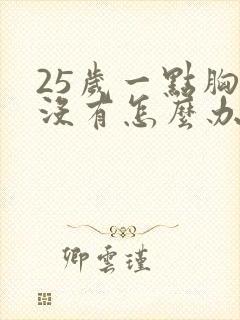 25歲一點胸
沒有怎麼办
卿雲瑾